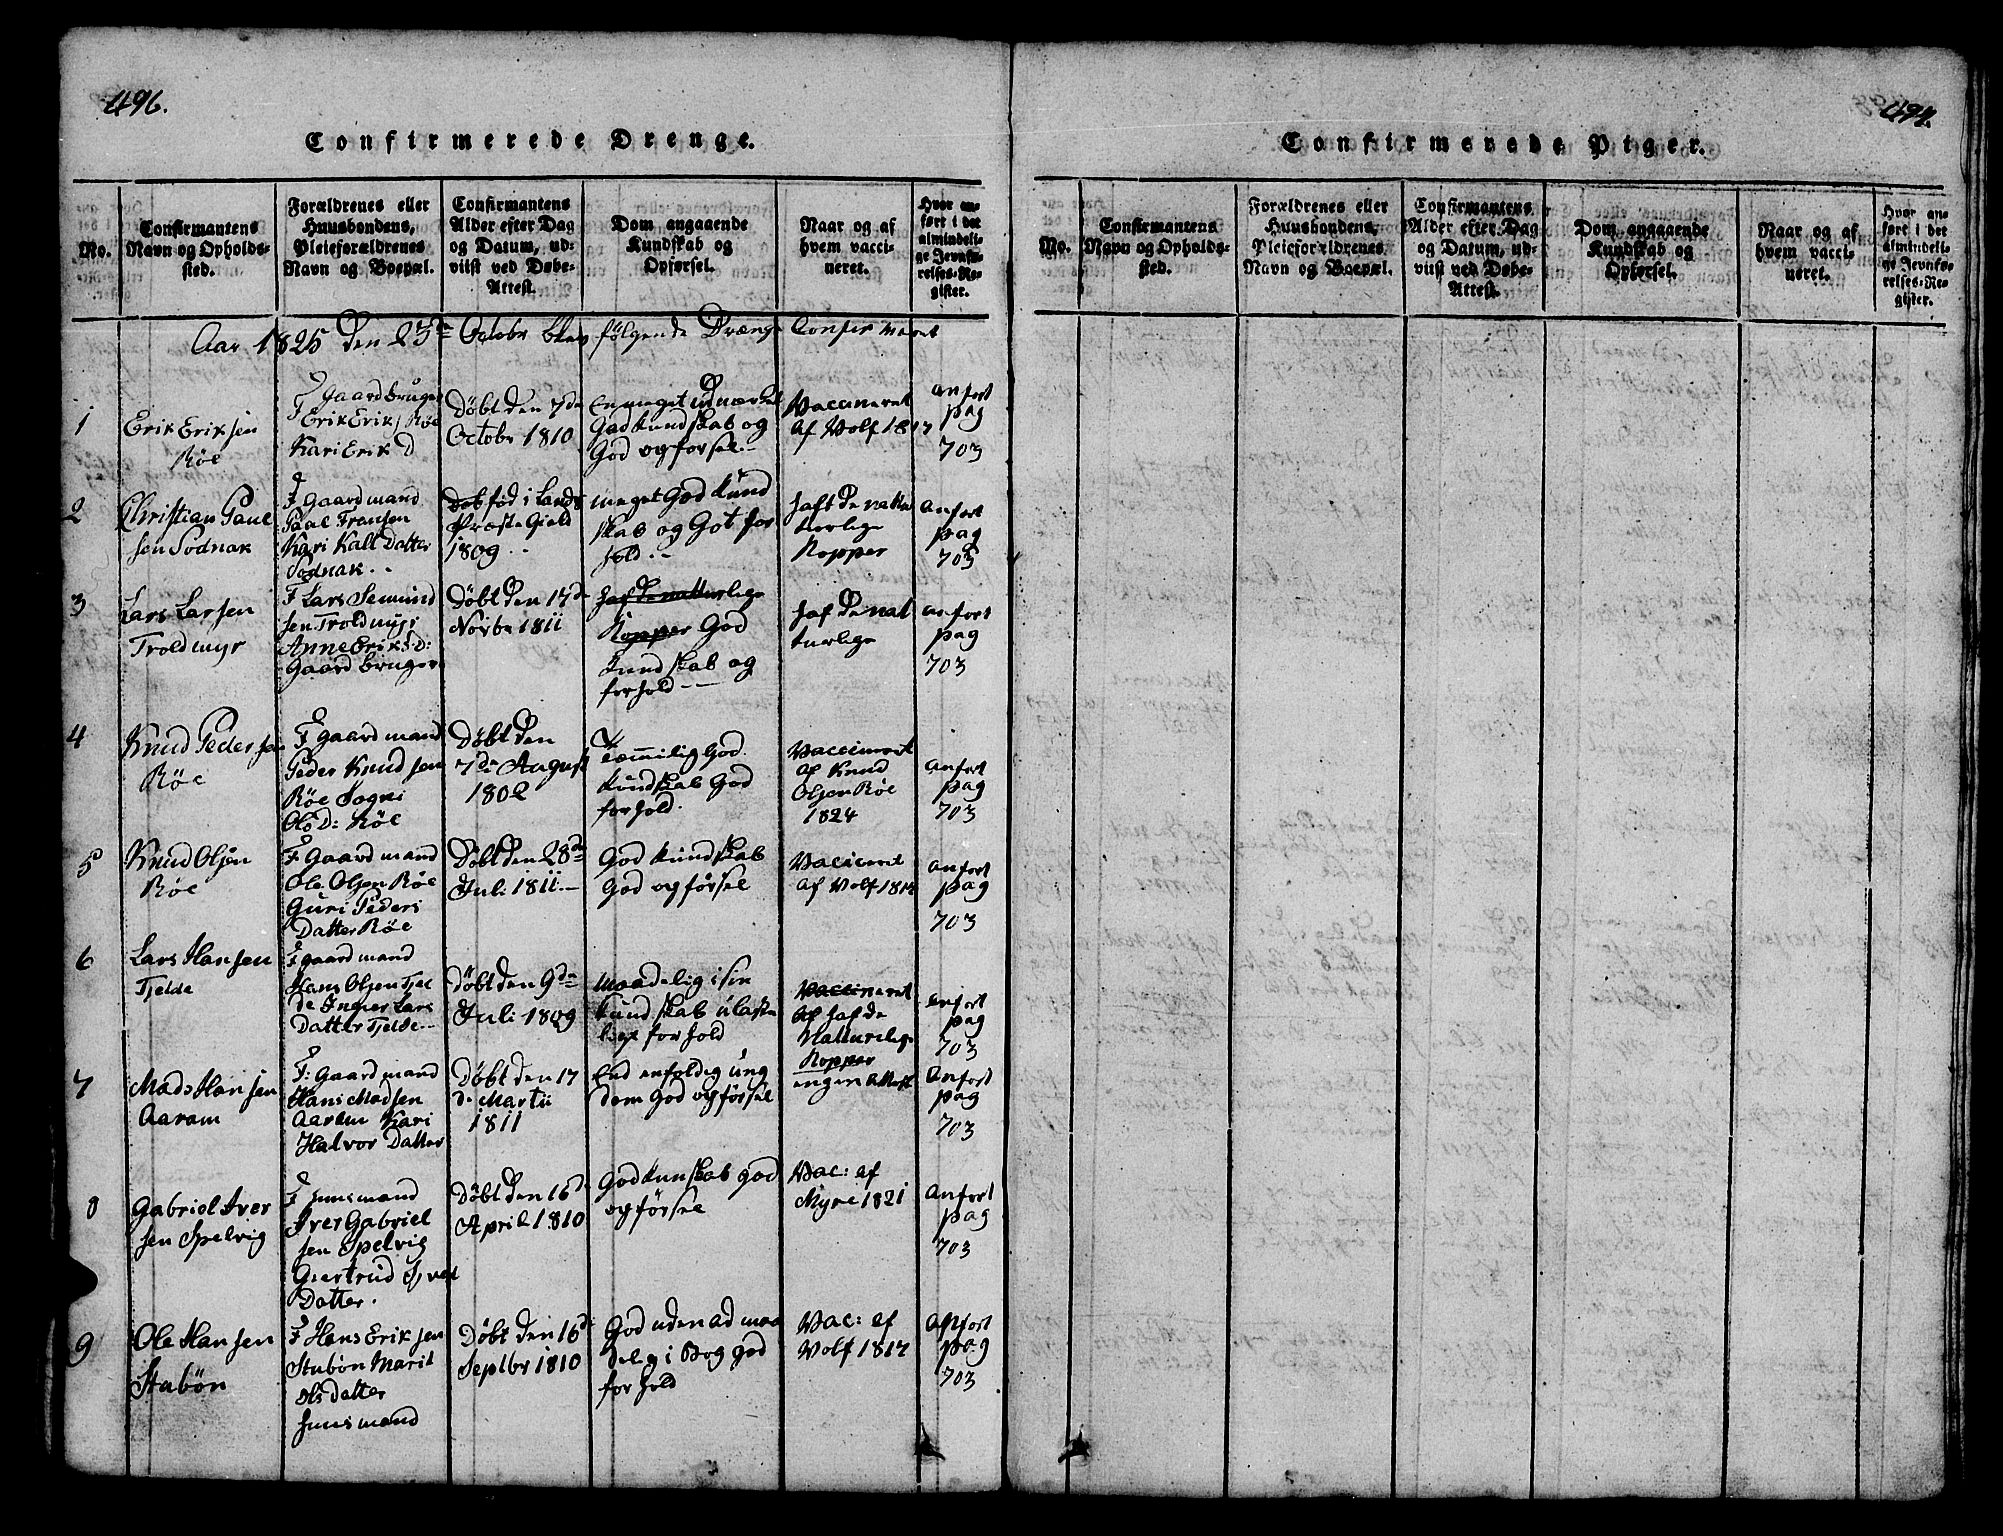 496.
Confirmerede Drenge.
No.
Confirmantens
Navn og Opholds-
sted.
Forældrenes eller
Huusbondens,
Pleieforældrenes
Navn og Boepæl.
Confirmantens
Alder efter Dag
og Datum, ud-
viist ved Døbe-
Attest.
Dom angaaende
Kundskab og
Opførsel.
Naar og af
hvem vacci-
neret.
Hvor an-
ført i det
almindeli-
ge Jevnfø-
relses-Re-
gister.
Aar 1825 den 23de Octobr blev følgende Drænge Confirmeret
1
Erik Eriksen
Røe
F gaardbruger
Erik Eriks Røe
Kari Erik D
Døbt den 7de
Octobr 1810
En meget udmærket
God kundskab og
God opførsel.
Vaccineret
af Wolf 1817
anført
pag
703
2
Christian Paul
sen Sodnak
F gaardmand
Paal Fransen
Kari Kall Datter
Sodnak..
Døb fød i Lands
Præste Gield
1809..
meget God kund
skab og Got for
hold..
haft de natte
turlige
Kopper
anfort
pag
703
3
Lars Larsen
Troldmyr
F Lars Semund
sen Troldmyr
Anne Eriks D:
Gaard bruger
Døbt den 17de
Novbr 1811
haf de natturlige
Kopper God
kundskab og
forhold
haf de nat
turlige
anfort
pag
703
4
Knud Pedersen
Røe
F gaardmand
Peder Knudsen
Røe Sogni
Ols D: Røe
Døbt den
7de August
1802
temmelig God
kundskab God
forhold.
Vaccineret
af Knud
Olsen Røe
1824
anfort
pag
703
5
Knud Olsen
Røe
F Gaardmand
Ole Olsen Røe
Guri Peders
Datter Røe
Døbt den 28de
Juli 1811
God kundskab
God opførsel
Vacineret
af Wolf 1817
anfort
pag
703
6
Lars Hansen
Tjelde
F gaardmand
Hans Olsen Tjel
de Ingner Lars
Datter Tjelde
Døbt den 9de
Juli 1809
maadelig i sin
kundskab ulaste
ligt forhold
Vaccineret
af haf de
Natturelige
Kopper
anfort
pag
703
7
Mads Hansen
Aaram
F: gaardmand
Hans Madsen
Aarem Kari
Halvor Datter
Døbt den 17
de Martii
1811
End enfoldig ung
dom God opførsel
ingen attest
anfort
pag
703
8
Gabriel Iver
sen Spelvig
F huusmand
Iver Gabriel
sen Spelvig
Giertrud Iver
Datter.
Døbt den 16de
April 1810
God kunskab god
opførsel
Vac: af
Myre 1821
anfort
pag
703
9
Ole Hansen
Stabøn
F Hans Eriksen
Stubøn Marit
Ols datter
huusmand
Døbt den 16de
Septbr 1810
God uden ad maa
delig i Bog god
forhold
Vac: af
Wolf 1817
anfort
pag
703
497.
Confirmerede Piger.
No.
Confirmantens
Navn og Opholds-
sted.
Forældrenes eller
Huusbondens,
Pleieforældrenes
Navn og Boepæl.
Confirmantens
Alder efter Dag
og Datum, ud-
viist ved Døbe-
Attest.
Dom angaaende
Kundskab og
Opførsel.
Naar og af
hvem vacci-
neret.
Hvor an-
ført i det
almindeli-
ge Jevnfø-
relses-Re-
gister.